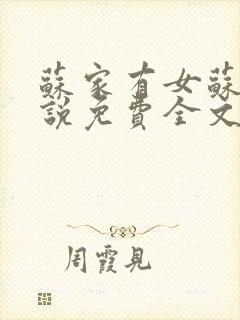 蘇家有女蘇
說免費全文
周霞見